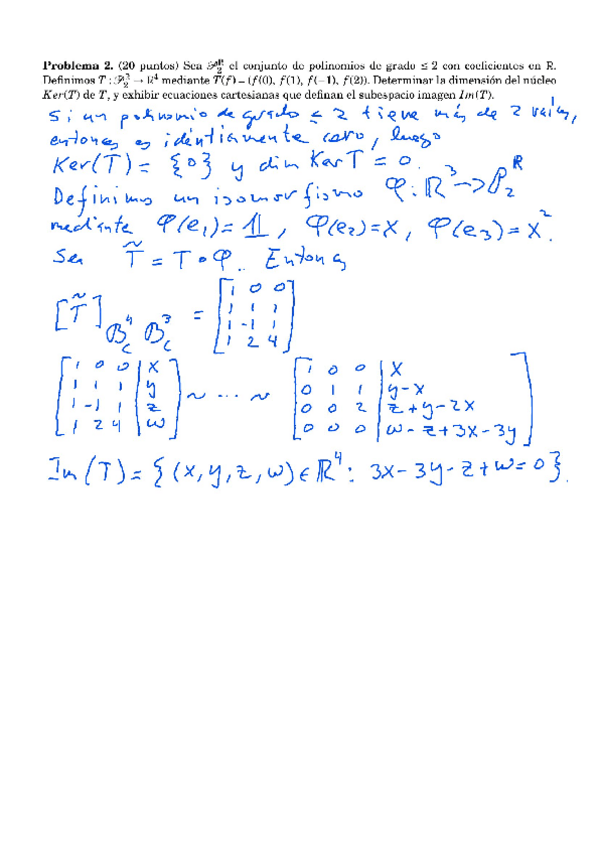 Problema 2. (20 puntos) Sea 𝒫₂ᴿ el conjunto de polinomios de grado ≤ 2 con coeficientes en R.
Definimos T : 𝒫₂ᴿ → R⁴ mediante T(f) = (f(0), f(1), f(−1), f(2)). Determinar la dimensión del núcleo
Ker(T) de T, y exhibir ecuaciones cartesianas que definan el subespacio imagen Im(T).
Si un polinomio de grado ≤ 2 tiene más de 2 raíces,
entonces es idénticamente cero, luego
Ker(T) = {0} y dim Ker T = 0.
Definimos un isomorfismo φ: ℝ³ → P₂ᴿ
mediante φ(e₁) = 𝟙, φ(e₂) = x, φ(e₃) = x².
Sea T̃ = T∘φ. Entonces
[T̃] B_c⁴ B_c³ = [1 0 0; 1 1 1; 1 -1 1; 1 2 4]
[1 0 0 | x] ~ ... ~ [1 0 0 | x]
[1 1 1 | y] [0 1 1 | y-x]
[1 -1 1 | z] [0 0 2 | z+y-2x]
[1 2 4 | w] [0 0 0 | w-z+3x-3y]
Im(T) = {(x, y, z, w) ∈ ℝ⁴: 3x-3y-z+w=0}.